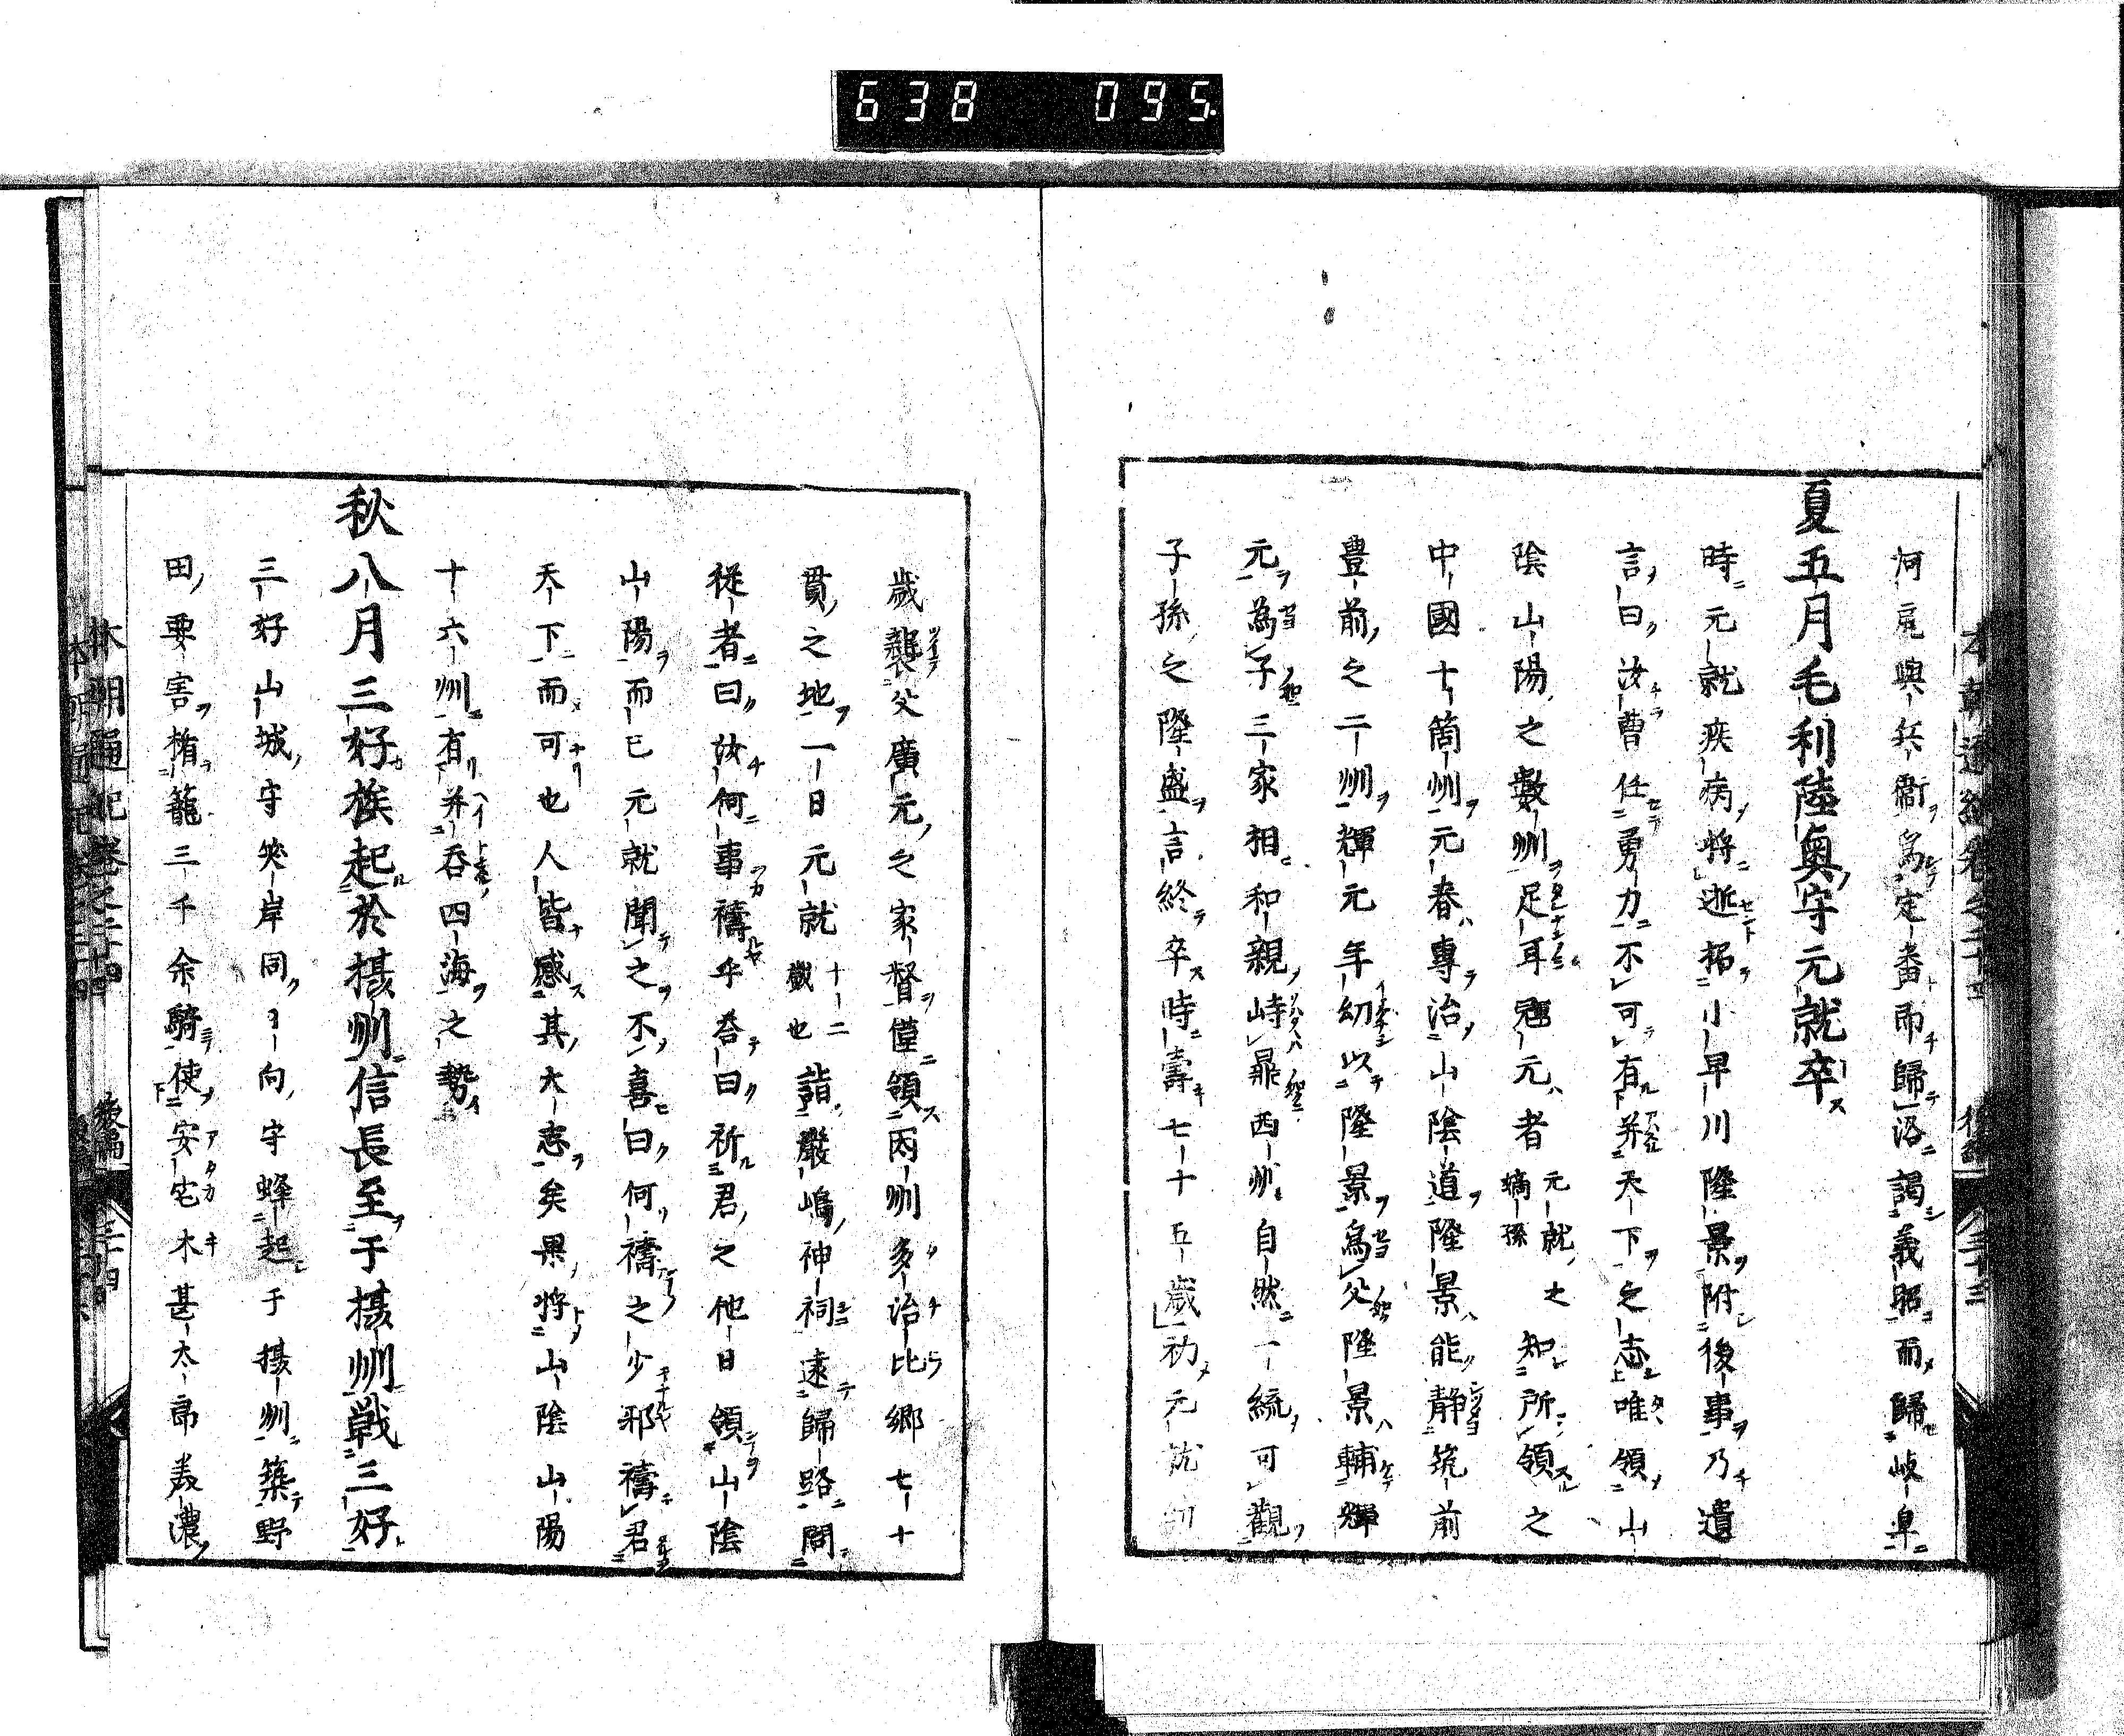 638 095
河尻與兵衞為定番而歸洛謁義昭而歸岐阜
夏五月毛利陸奧守元就卒
時元就疾病將逝招小早川隆景附後事乃遺
言曰汝曹任勇力不可有并天下之志唯領山
陰山陽之數州足耳輝元者元就之嫡孫知所領之
中國十箇州元春專治山陰道隆景能靜筑前
豊前之二州輝元年幼以隆景為父隆景輔輝
元為子三家相和親峙鼎西州自然一統可觀
子孫之隆盛言終卒時壽七十五歲初元就初
歲襲父廣元之家督僅領因州多治比鄉七十
貫之地一日元就十二歲也詣嚴嶋神祠遠歸路問
從者曰汝何事禱乎答曰祈君之他日領山陰
山陽而已元就聞之不喜曰何禱之少邪禱君
天下而可也人皆感其大志矣果將山陰山陽
十六州有并呑四海之勢
秋八月三好族起於揚州信長至于揚州戰三好
三好山城守笑岸同日向守蜂起于揚州築野
田要害楯籠三千余騎使安宅木甚太郎美濃
本朝通紀卷之二十四 後編 二十四